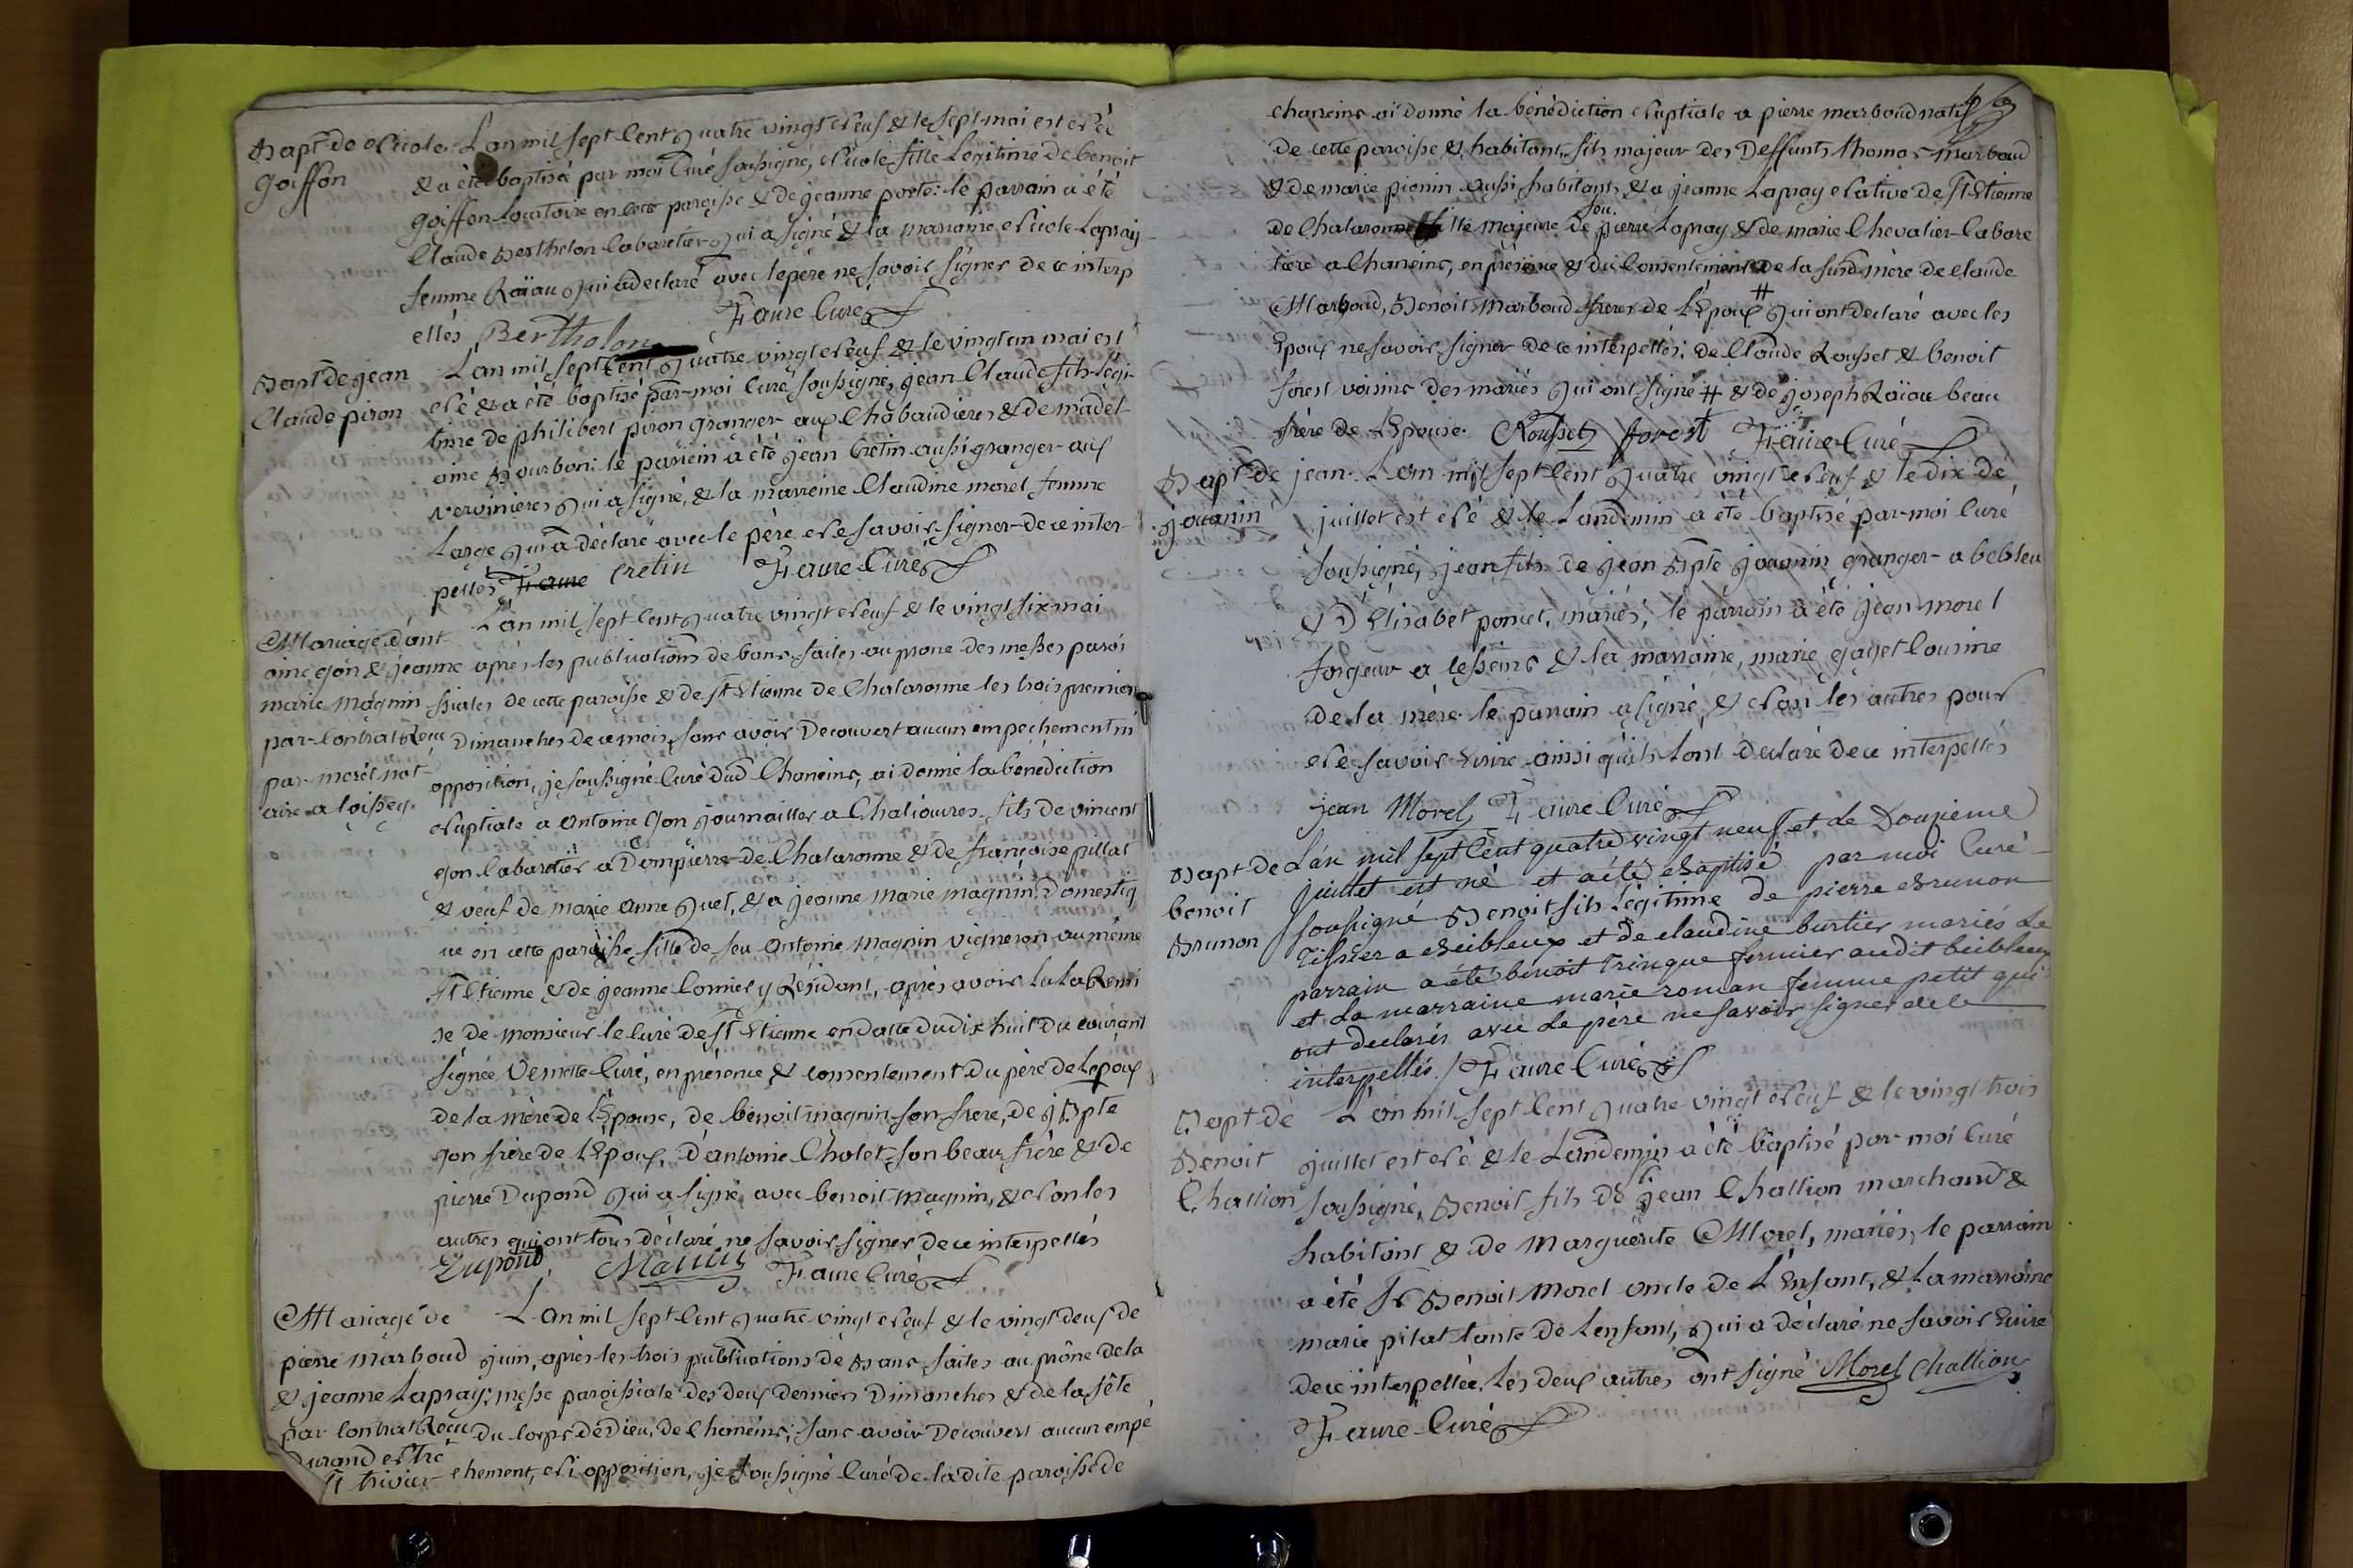 Bapt de Nicole L'an mil sept Cent Quatre vingt Neuf & le sept mai est Née
goiffon & a été baptisée par moi Curé soussigné, Nicole fille Legitime de benoit
goiffon Locatoire en cette paroisse & de jeanne porte: le parrain a été
Claude Berthelon Cabaretier Qui a signé & la marraine Nicole Lapray
femme Raïau Qui a declaré avec le père ne savoir signer de ce interp
ellés Bertholon Faure Curé
Bapt de jean L'an mil sept Cent Quatre vingt Neuf & le vingt un mai est
Claude piron Né & a été baptisé par moi Curé soussigné, jean Claude fils légi
time de philibert piron granger aux Chabaudieres & de madel
aine Bourbon: le parrein a été jean Cretin aussi granger aux
vervinieres Qui a signé, & la marreine Claudine morel femme
Large Qui a déclaré avec le père Ne savoir signer de ce inter
pellés Faure cretin Faure Curé
L'an mil sept Cent Quatre vingt Neuf & le vingt six mai
Mariage d'ant
oine gon & jeanne après les publications de bans faites au prone des messes parois
marie magnin ssiales de cette paroisse & de St Etienne de Chalaronne les trois premiers
par Contrat Recu Dimanches de ce mois, sans avoir Decouvert aucun empechement ni
par morêl not opposition, je soussigné Curé dud Chaneins, ai donné la bénédiction
aire a loissey. Nuptiale a antoine gon journailler a Chaliouvres fils de vincent
gon Cabaretier a Dompierre de Chalaronne & de françoise pillat
& veuf de marie anne Quet, & a jeanne marie magnin, Domestiq
ue en cette paroisse fille de feu antoine magnin vigneron au même
St Etienne & de jeanne Comier y Résidant, après avoir lu la Remi
se de monsieur le Curé de St Etienne en datte du dix huit du courant
signée Vernette Curé, en présence & consentement du père de Lepoux
de la mère de L'Epouse, de benoit magnin son frere, de j Bpte
gon frère de L'Epoux, d'antoine Cholet son beau frère & de
pierre Dupond Qui a signé avec benoit magnin, & Non les
autres qui ont tous déclaré ne savoir signer de ce interpellés
Dupond Manin Faure Curé
Mariage de L'an mil sept Cent Quatre vingt Neuf & le vingt deux de
pierre Marboud juin, après les trois publications de Bans faites au prône de la
& jeanne Lapray: messe paroissiale des deux derniers Dimanches & de la fête
par Contrat Recu du Corps de Dieu, de Chaneins; sans avoir Decouvert aucun empé
Durand Ntre
St trivier chement, Ni opposition, je soussigné Curé de ladite paroisse de
chaneins ai donné la bénédiction Nuptiale a pierre marboud natif
de cette paroisse & habitant, fils majeur des Deffunts thomas Marboud
& de marie pionin aussi habitants & a jeanne Lapray Native de St Etienne
de Chalaronne fille majeure de feu pierre Lapray & de marie Chevalier Cabare
tiere a Chaneins, en presence & du Consentement de la susd mère de Claude
Marboud, Benoit Marboud freres de L'Epoux # Qui ont declaré avec les
Epoux ne savoir signer de ce interpellés; de Claude Rousset & benoit
forest voisins des mariés Qui ont signé # & de joseph Raïau beau
frère de L'Epouse. Rousset forest Faure Curé
Bapt de jean L'an mil sept Cent Quatre vingt Neuf & le dix de
gouanin juillet est Né & le Landemin a été baptisé par moi Curé
soussigné, jean fils de jean Bpte gouanin granger a bebleu
& D'Elisabet poncet, mariés; le parrain a été jean morel
forgeur a lesseins & la marraine, marie gayet Cousine
de la mère le parrain a signé, & Non les autres pour
Ne savoir Ecrire ainsi qu'ils l'ont declaré de ce interpellés
jean Morel Faure Curé
Bapt de L'an mil sept Cent quatre vingt neuf et le Douzieme
benoit juillet est né et a été Baptisé par moi Curé
Brunon soussigné Benoit fils Légitime de pierre Brunon
Tissier a Beibleux et de claudine burtier mariés le
parrain a été benoit Trinque fermier audit beibleux
et la marraine marie roman femme petit qui
ont declarés avec le père ne savoir signer de ce
interpellés. / Faure Curé
Bapt de L'an mil sept Cent Quatre vingt Neuf & le vingt trois
Benoit juillet est Né & le Landemin a été baptisé par moi Curé
Chattion soussigné, Benoit fils de sr jean Chattion marchand &
habitant & de Marguerite Morel, mariés, le parrain
a été Sr Benoit Morel oncle de L'Enfant, & La marraine
marie pilat tante de Lenfant, Qui a déclaré ne savoir Ecrire
de ce interpellée, Les deux autres ont signé Morel Chattion
Faure Curé